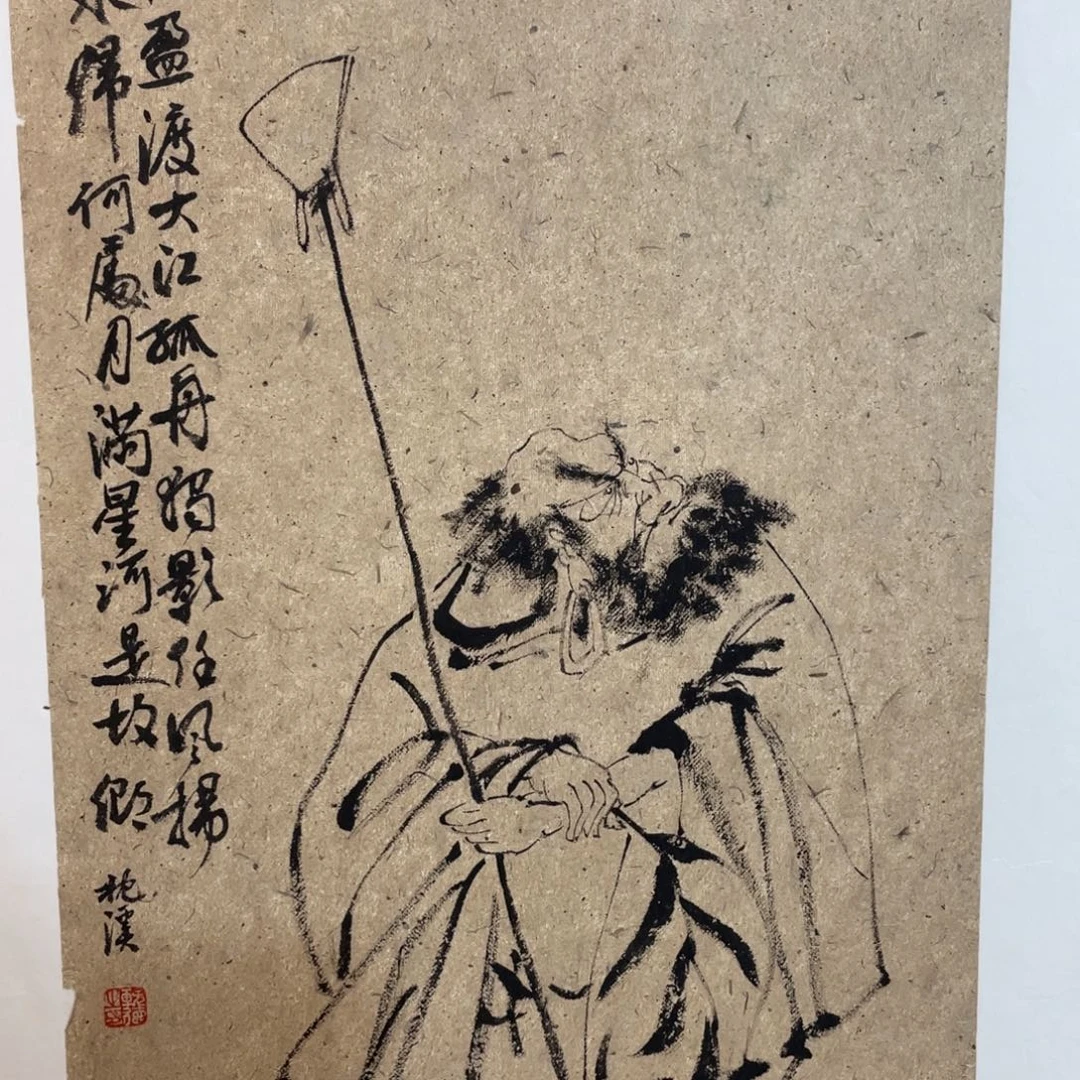 盈渡大江孤舟独影任风扬
归何处月满星河是故乡
枕溪